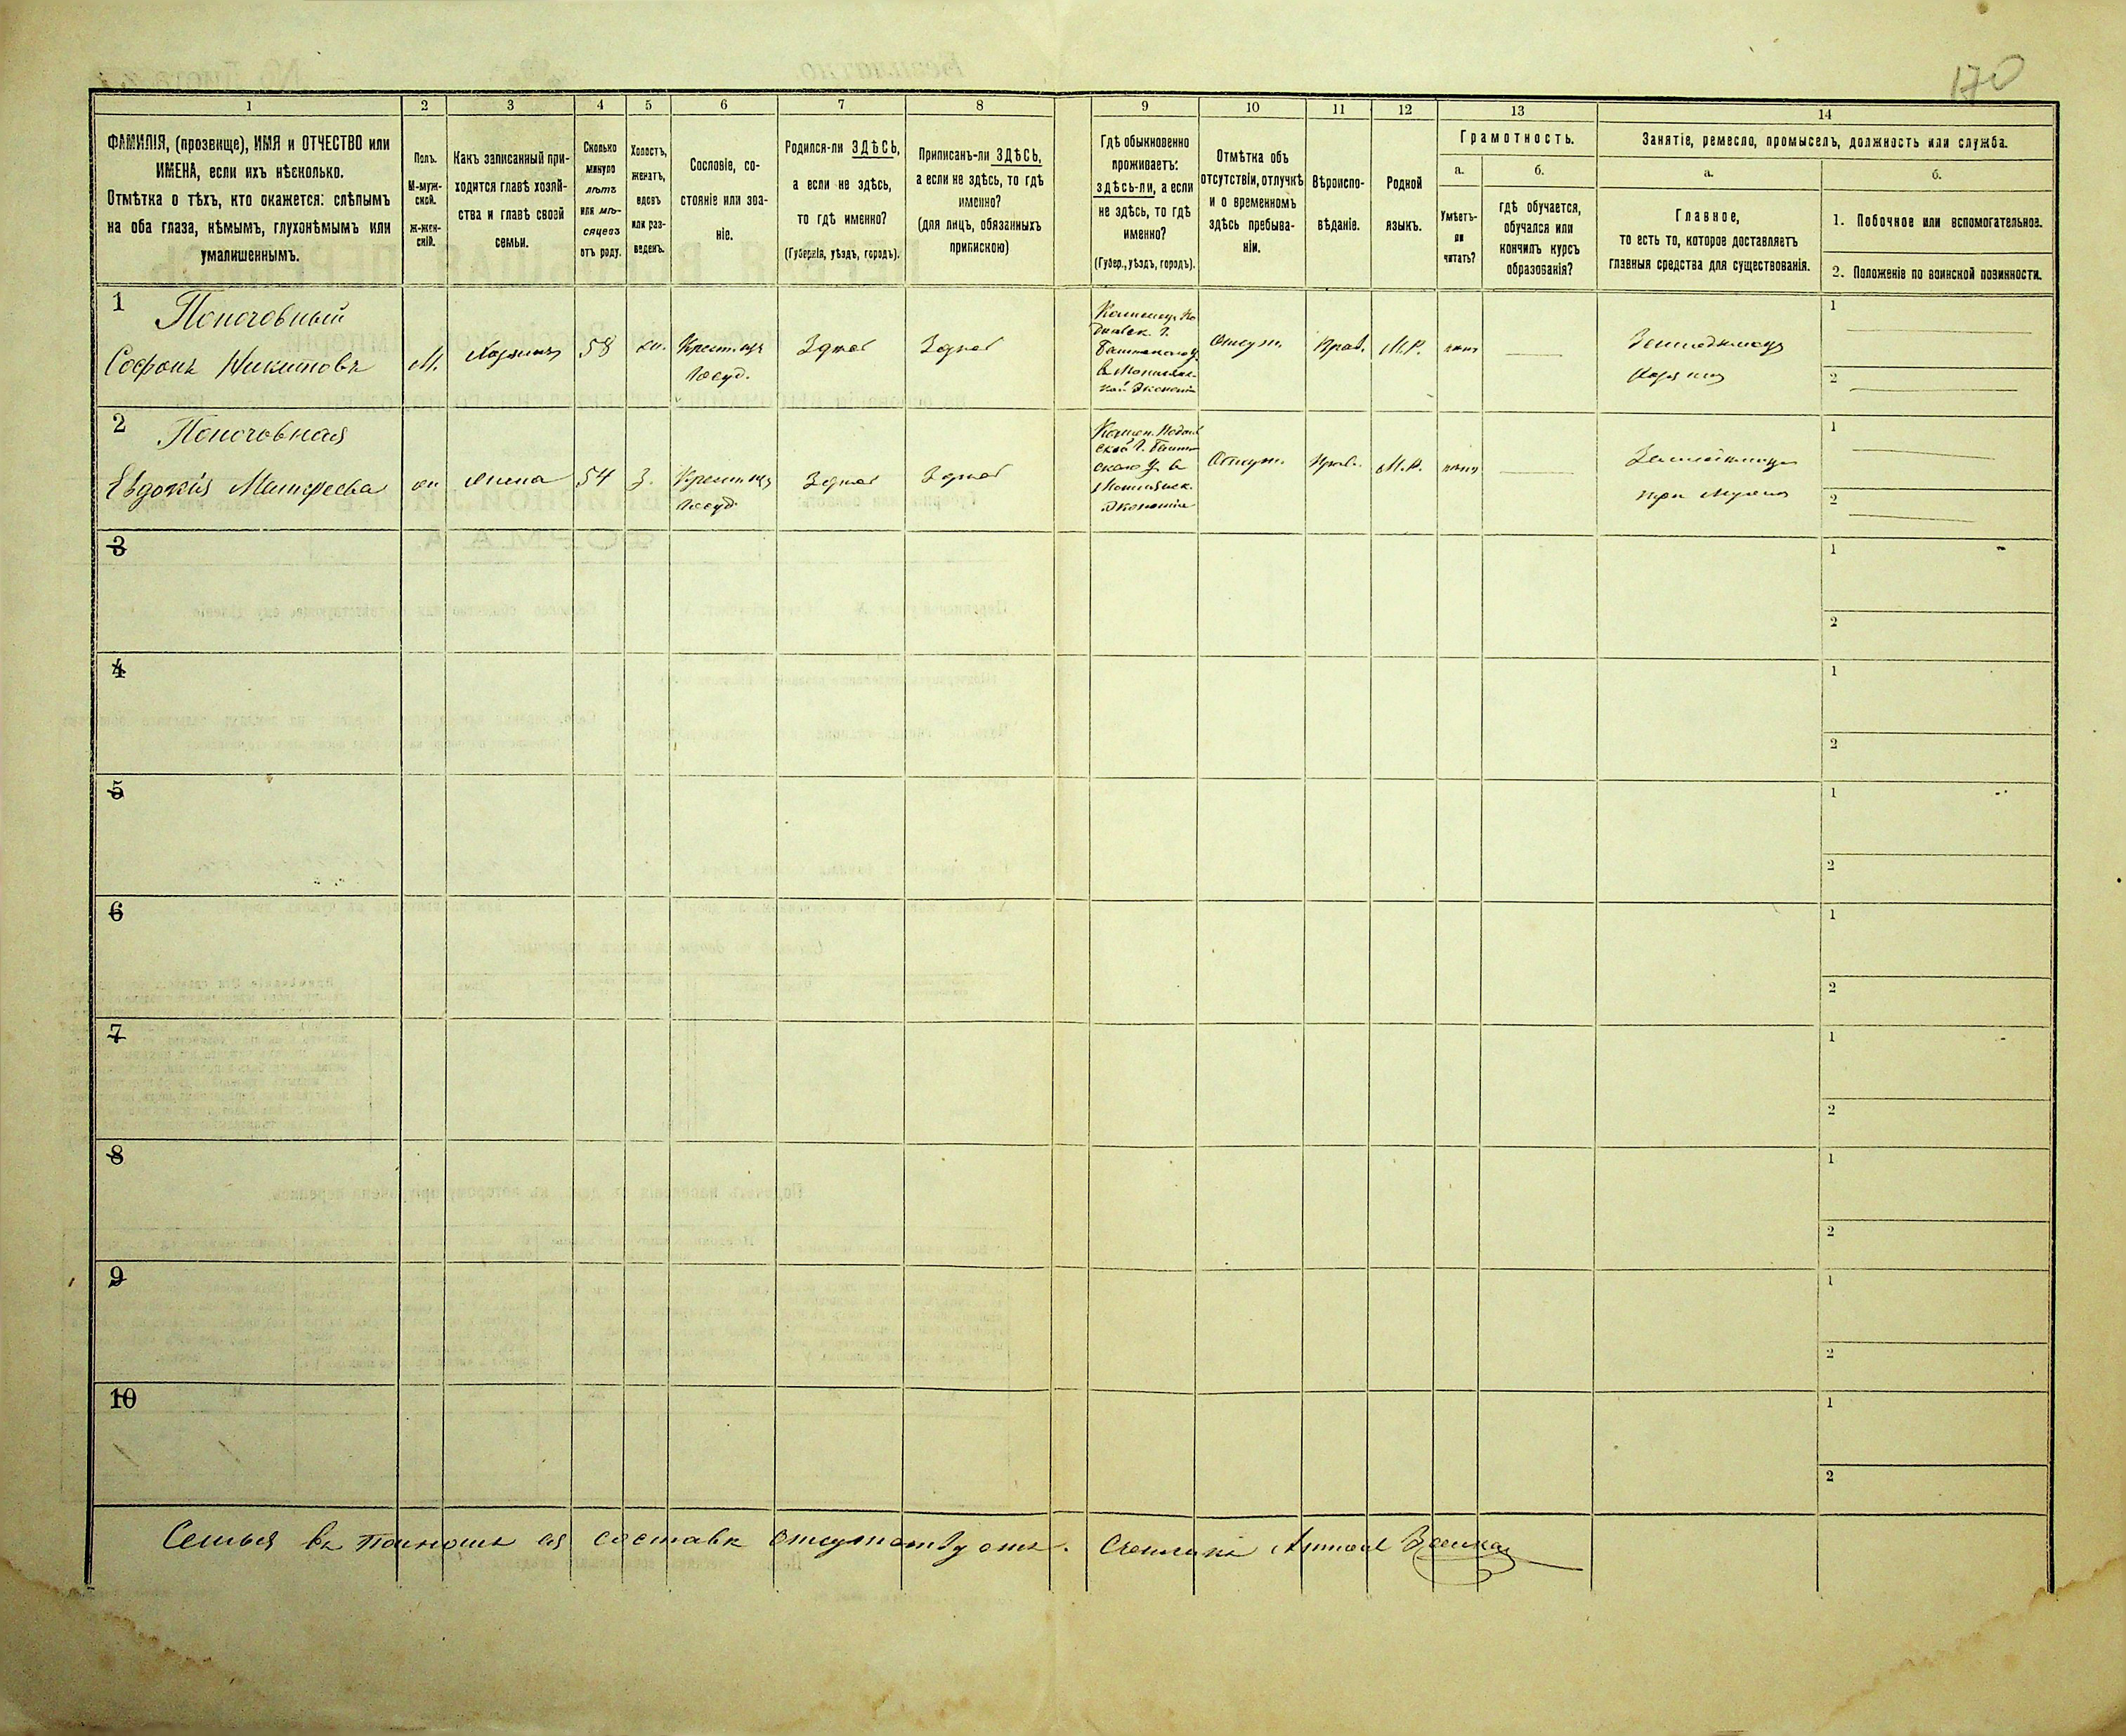 170
1
2
3
4
5
6
7
8
9
10
11
12
13
14
ФАМИЛІЯ, (прозвище), ИМЯ и ОТЧЕСТВО или
ИМЕНА, если ихъ нѣсколько.
Отмѣтка о тѣхъ, кто окажется: слѣпымъ
на оба глаза, нѣмымъ, глухонѣмымъ или
умалишеннымъ.
Полъ.
М-муж-
ской.
Ж-жен-
скій.
Какъ записанный при-
ходится главѣ хозяй-
ства и главѣ своей
семьи.
Сколько
минуло
лѣтъ
или мѣ-
сяцевъ
отъ роду.
Холостъ,
женатъ,
вдовъ
или раз-
веденъ.
Сословіе, со-
стояніе или зва-
ніе.
Родился-ли ЗДѢСЬ,
а если не здѣсь,
то гдѣ именно?
(Губернія, уѣздъ, городъ).
Приписанъ-ли ЗДѢСЬ,
а если не здѣсь, то гдѣ
именно?
(для лицъ, обязанныхъ
припискою)
Гдѣ обыкновенно
проживаетъ:
здѣсь-ли, а если
не здѣсь, то гдѣ
именно?
(Губер., уѣздъ, городъ).
Отмѣтка объ
отсутствіи, отлучкѣ
и о временномъ
здѣсь пребыва-
ніи.
Вѣроиспо-
вѣданіе.
Родной
языкъ.
Грамотность.
а.
Умѣетъ-
ли
читать?
б.
гдѣ обучается,
обучался или
кончилъ курсъ
образованія?
Занятіе, ремесло, промыселъ, должность или служба.
а.
Главное,
то есть то, которое доставляетъ
главныя средства для существованія.
б.
1. Побочное или вспомогательное.
2. Положеніе по воинской повинности.
1
Софонъ Никитовъ
М.
Хозяинъ
58
жн.
Крестьян
Госуд.
Здѣсь
Здѣсь
Отсут.
Прав.
М.Р.
нѣтъ
Земледелец
Хозяин
1
2
2
Евдокія Матфеева
жн
Жена
54
З.
Госуд.
Здѣсь
Здѣсь
Экономіи
Отсут.
Прав.
М.Р.
нѣтъ
при мужѣ
1
2
3
1
2
4
1
2
5
1
2
6
1
2
7
1
2
8
1
2
9
1
2
10
1
2
Семья въ полномъ ея составѣ отсутствуетъ. Счетчикъ